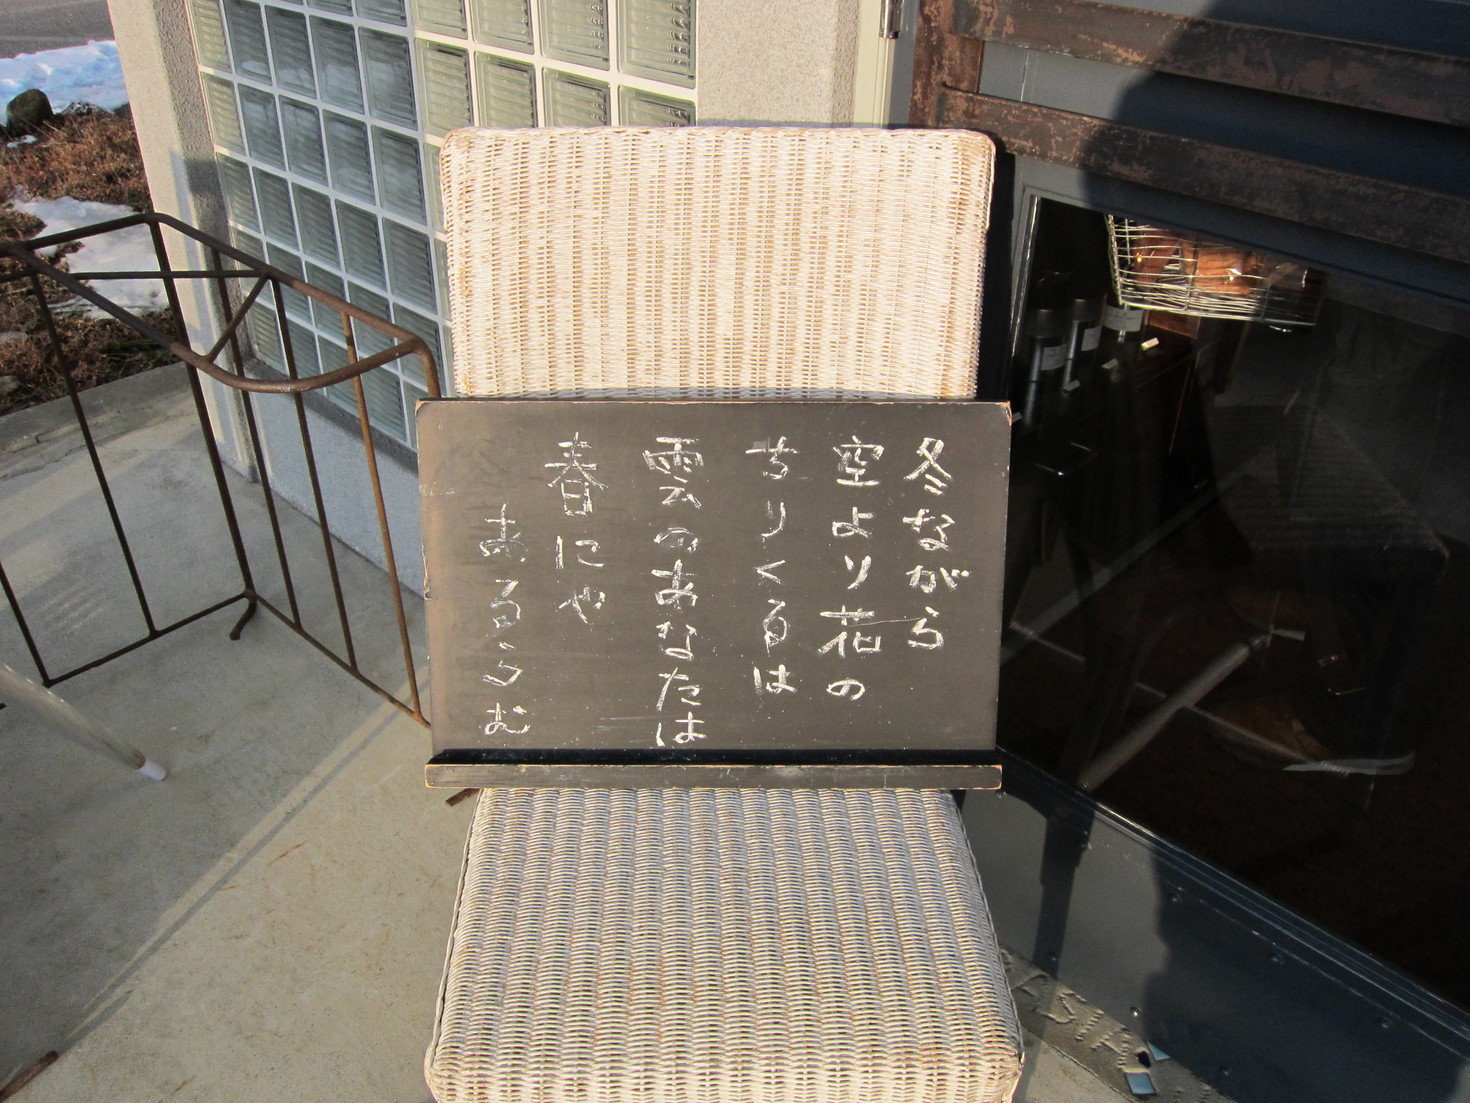 冬ながら
空より花の
ちりくるは
雲のあなたは
春にや
あるらむ